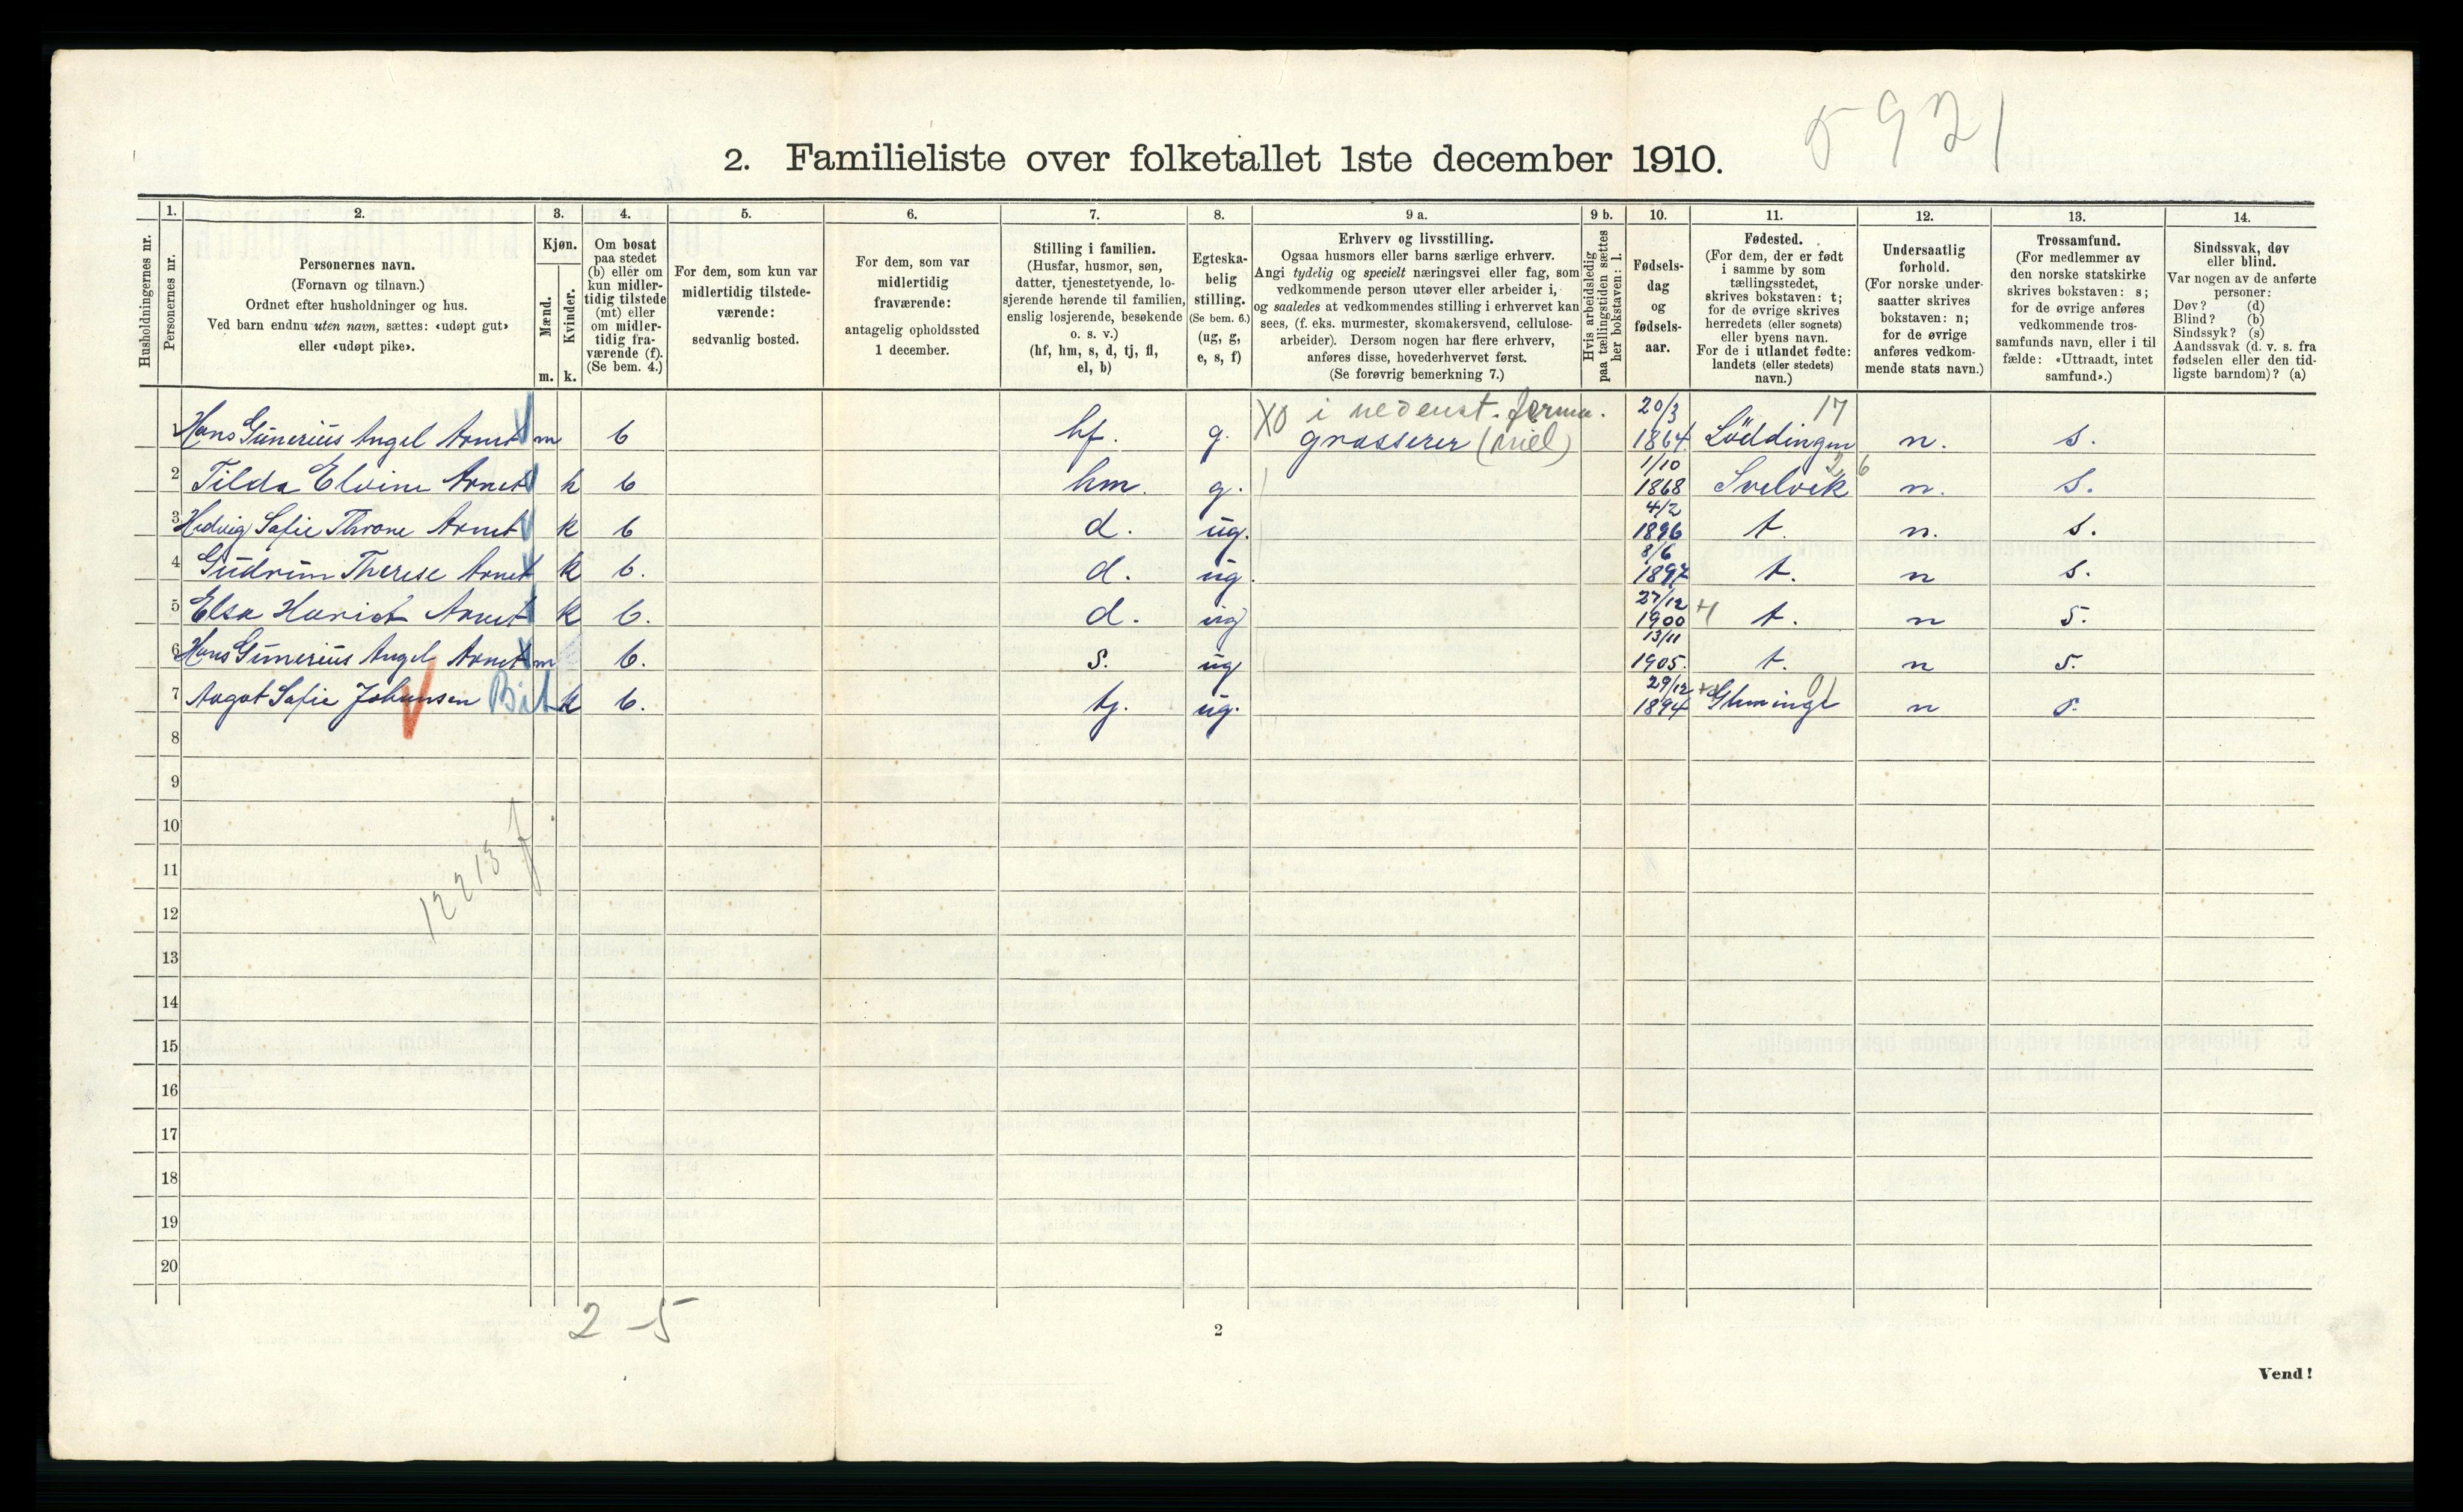 5921
2. Familieliste over folketallet 1ste december 1910.
Husholdningernes nr.
1.
Personernes nr.
2.
Personernes navn.
(Fornavn og tilnavn.)
Ordnet efter husholdninger og hus.
Ved barn endnu uten navn, sættes: «udøpt gut»
eller «udøpt pike».
3.
Kjøn.
Mænd.
Kvinder.
m. k.
4.
Om bosat
paa stedet
(b) eller om
kun midler-
tidig tilstede
(mt) eller
om midler-
tidig fra-
værende (f).
(Se bem. 4.)
5.
For dem, som kun var
midlertidig tilstede-
værende:
sedvanlig bosted.
6.
For dem, som var
midlertidig
fraværende:
antagelig opholdssted
1 december.
7.
Stilling i familien.
(Husfar, husmor, søn,
datter, tjenestetyende, lo-
sjerende hørende til familien,
enslig losjerende, besøkende
o. s. v.)
(hf, hm, s, d, tj, fl,
el, b)
8.
Egteska-
belig
stilling.
(Se bem. 6.)
(ug, g,
e, s, f)
9 a.
Erhverv og livsstilling.
Ogsaa husmors eller barns særlige erhverv.
Angi tydelig og specielt næringsvei eller fag, som
vedkommende person utøver eller arbeider i,
og saaledes at vedkommendes stilling i erhvervet kan
sees, (f. eks. murmester, skomakersvend, cellulose-
arbeider). Dersom nogen har flere erhverv,
anføres disse, hovederhvervet først.
(Se forøvrig bemerkning 7.)
9 b.
Hvis arbeidsledig
paa tællingstiden sættes
her bokstaven: l.
10.
Fødsels-
dag
og
fødsels-
aar.
11.
Fødested.
(For dem, der er født
i samme by som
tællingsstedet,
skrives bokstaven: t;
for de øvrige skrives
herredets (eller sognets)
eller byens navn.
For de i utlandet fødte:
landets (eller stedets)
navn.)
12.
Undersaatlig
forhold.
(For norske under-
saatter skrives
bokstaven: n;
for de øvrige
anføres vedkom-
mende stats navn.)
13.
Trossamfund.
(For medlemmer av
den norske statskirke
skrives bokstaven: s;
for de øvrige anføres
vedkommende tros-
samfunds navn, eller i til
fælde: «Uttraadt, intet
samfund».)
14.
Sindssvak, døv
eller blind.
Var nogen av de anførte
personer:
Døv? (d)
Blind? (b)
Sindssyk? (s)
Aandssvak (d. v. s. fra
fødselen eller den tid-
ligste barndom)? (a)
X0 i nedenst. firma. 20/3 17
1 Hans Gunerius Angel Arnet m b hf. g. grosserer 1864 Löddingen n. s.
1/10 26
2 Tilda Elvine Arnet k b hm. g. 1868 Svelvik n. s.
4/2
3 Hedvig Sofie Throne Arnet k b d. ug. 1896 t. n. s.
8/6
4 Gudrun Therese Arnet k b. d. ug. 1897 t. n s.
27/12
5 Elsa Hariet Arnet k b. d. ug 1900 t. n s.
13/11
6 Hans Gunerius Angel Arnet m b. s. ug 1905. t. n s.
29/12
7 Aagot Sofie Johansen k b. tj. ug. 1894 n s.
8
9
10
11
12213
12
13
14
15
16
17
18
19
20
2-5
2
Vend!